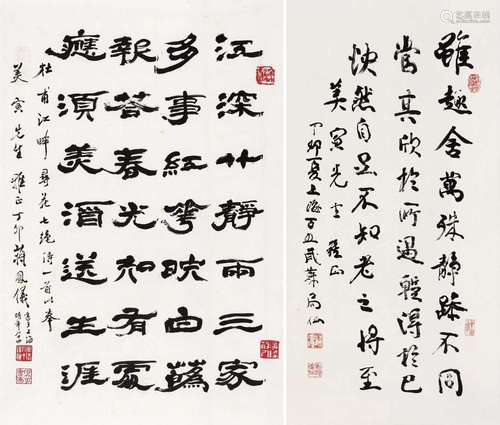 雖趣舍萬殊静躁不同
當其欣於所遇蹔得於己
快然自足不知老之將至
美寅先生雅正
丁卯夏上海
江深竹静兩三家
多事紅華映白蘤
報答春光知有處
應須美酒送生涯
杜甫江畔尋花七絕詩一首以奉
美寅先生雅正丁卯